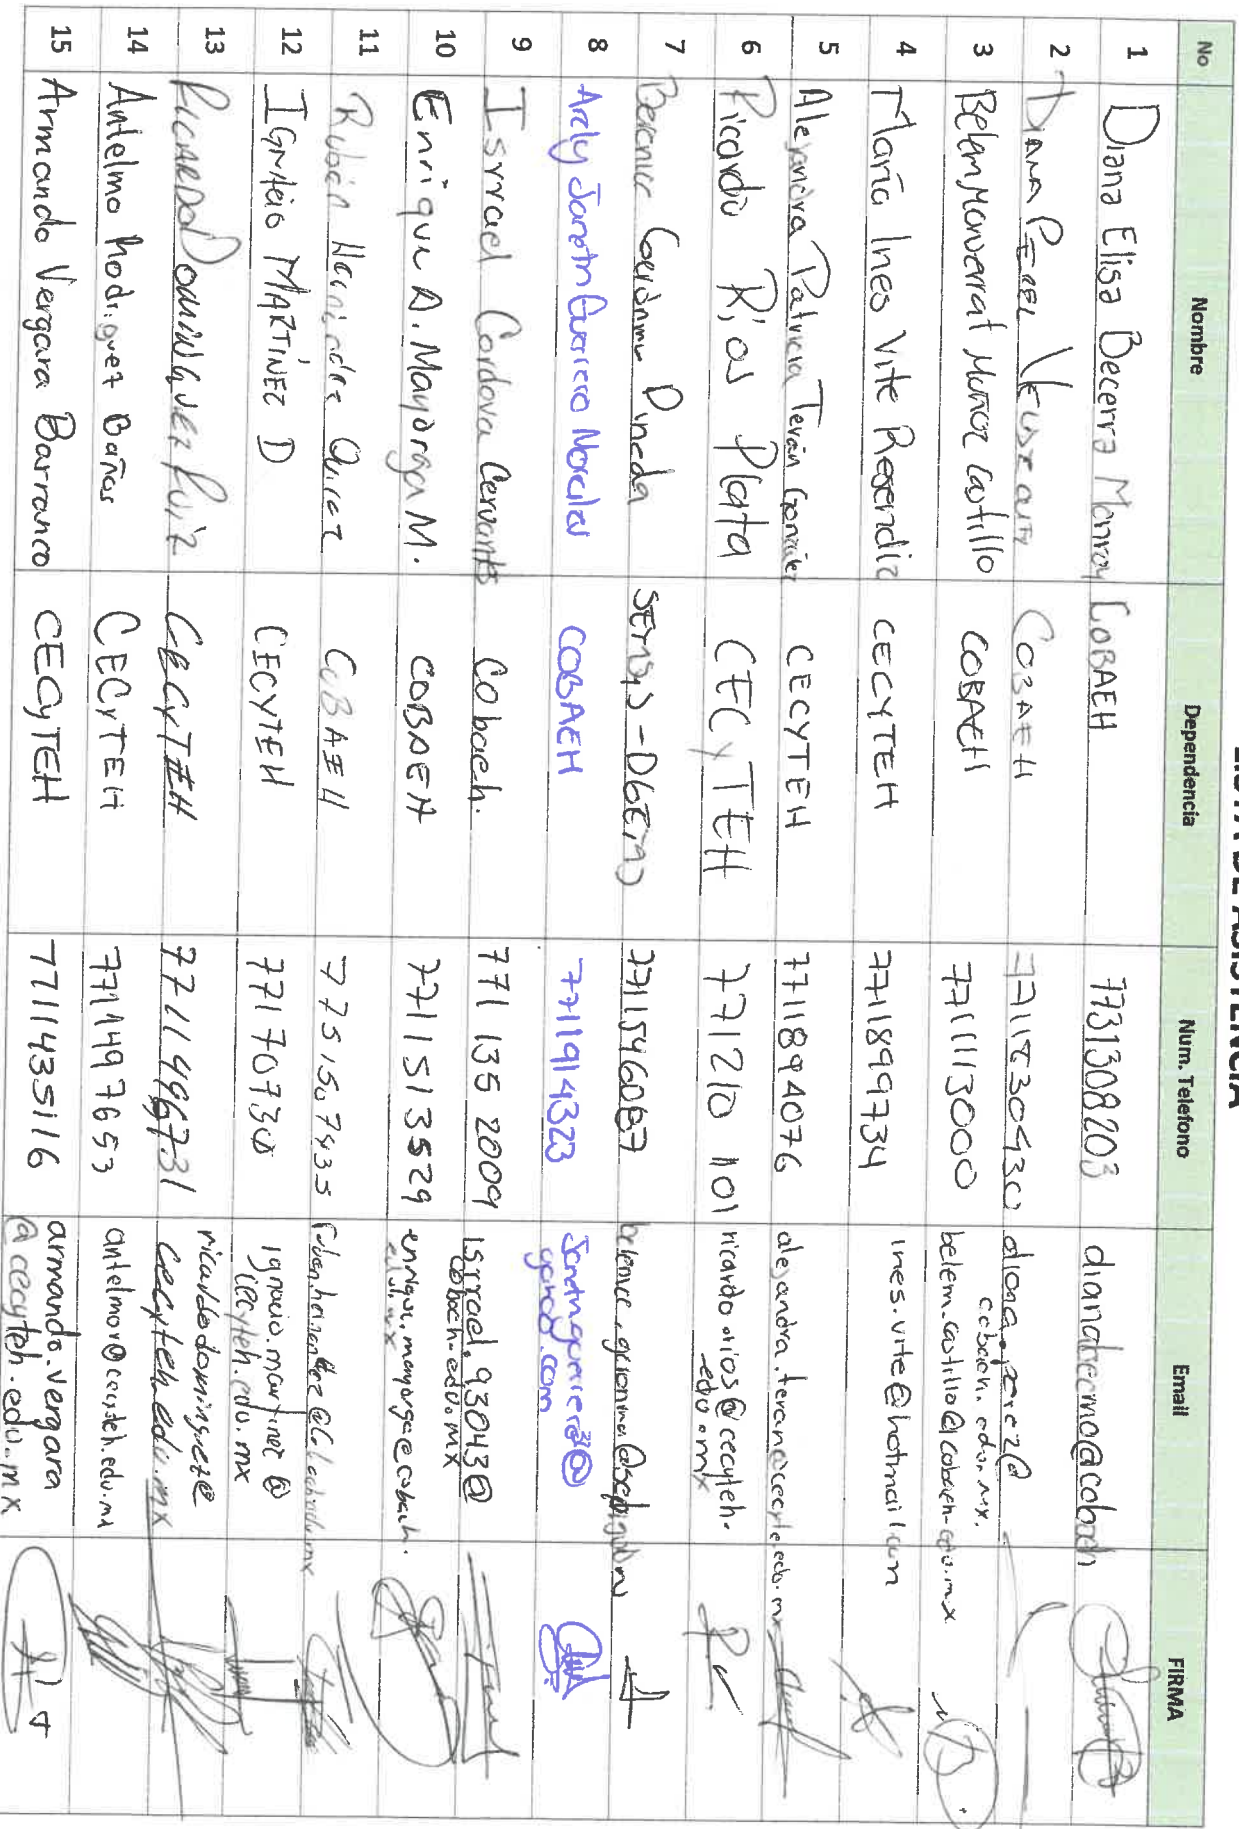 LISTA DE ASISTENCIA
No Nombre Dependencia Num. Telefono Email FIRMA
1 Diana Elisa Becerra Monroy COBAEH 7731308203 dianabecmo@cobaeh
2 DIANA COBAEH 7711830430 diana.perez@
cobaeh.edu.mx.
3 Belem Monserrat Muñoz Castillo COBAEH 7711113000 belem.castillo@cobaeh.edu.mx
4 María Ines Vite Resendiz CECYTEH 7711899734 ines.vite@hotmail.com
5 Alejandra Patricia Terán González CECYTEH 7711894076 alejandra.teran@cecyte.edu.mx
6 Ricardo Ríos Plata CECyTEH 771210 1101 ricardo.rios@cecyteh.
edu.mx
7 Berenice Gerónimo Pineda 7715946087
8 Arely Janeth Guerrero Nocular COBAEH 7711914323 Janethguerrero3@
9 Isrrael Cordova Cervantes Cobaeh. 771 135 2009 isrrael.93043@
cobaeh.edu.mx
10 Enrique A. Mayorga M. COBAEH 7711513529 enrique.mayorga@cobaeh.
edu.mx
11 Rubén Hernández Quiroz COBAEH 7751507435
12 IGNACIO MARTÍNEZ D CECYTEH 7717073 ignacio.martinez@
cecyteh.edu.mx
13 RICARDO DOMINGUEZ RUIZ CECYTEH 7711496731 ricardo.dominguez@
cecyteh.edu.mx
14 Antelmo Rodriguez Baños CECYTEH 7711497653 antelmor@cecyteh.edu.mx
15 Armando Vergara Barranco CECyTEH 7711435116 armando.vergara
@cecyteh.edu.mx